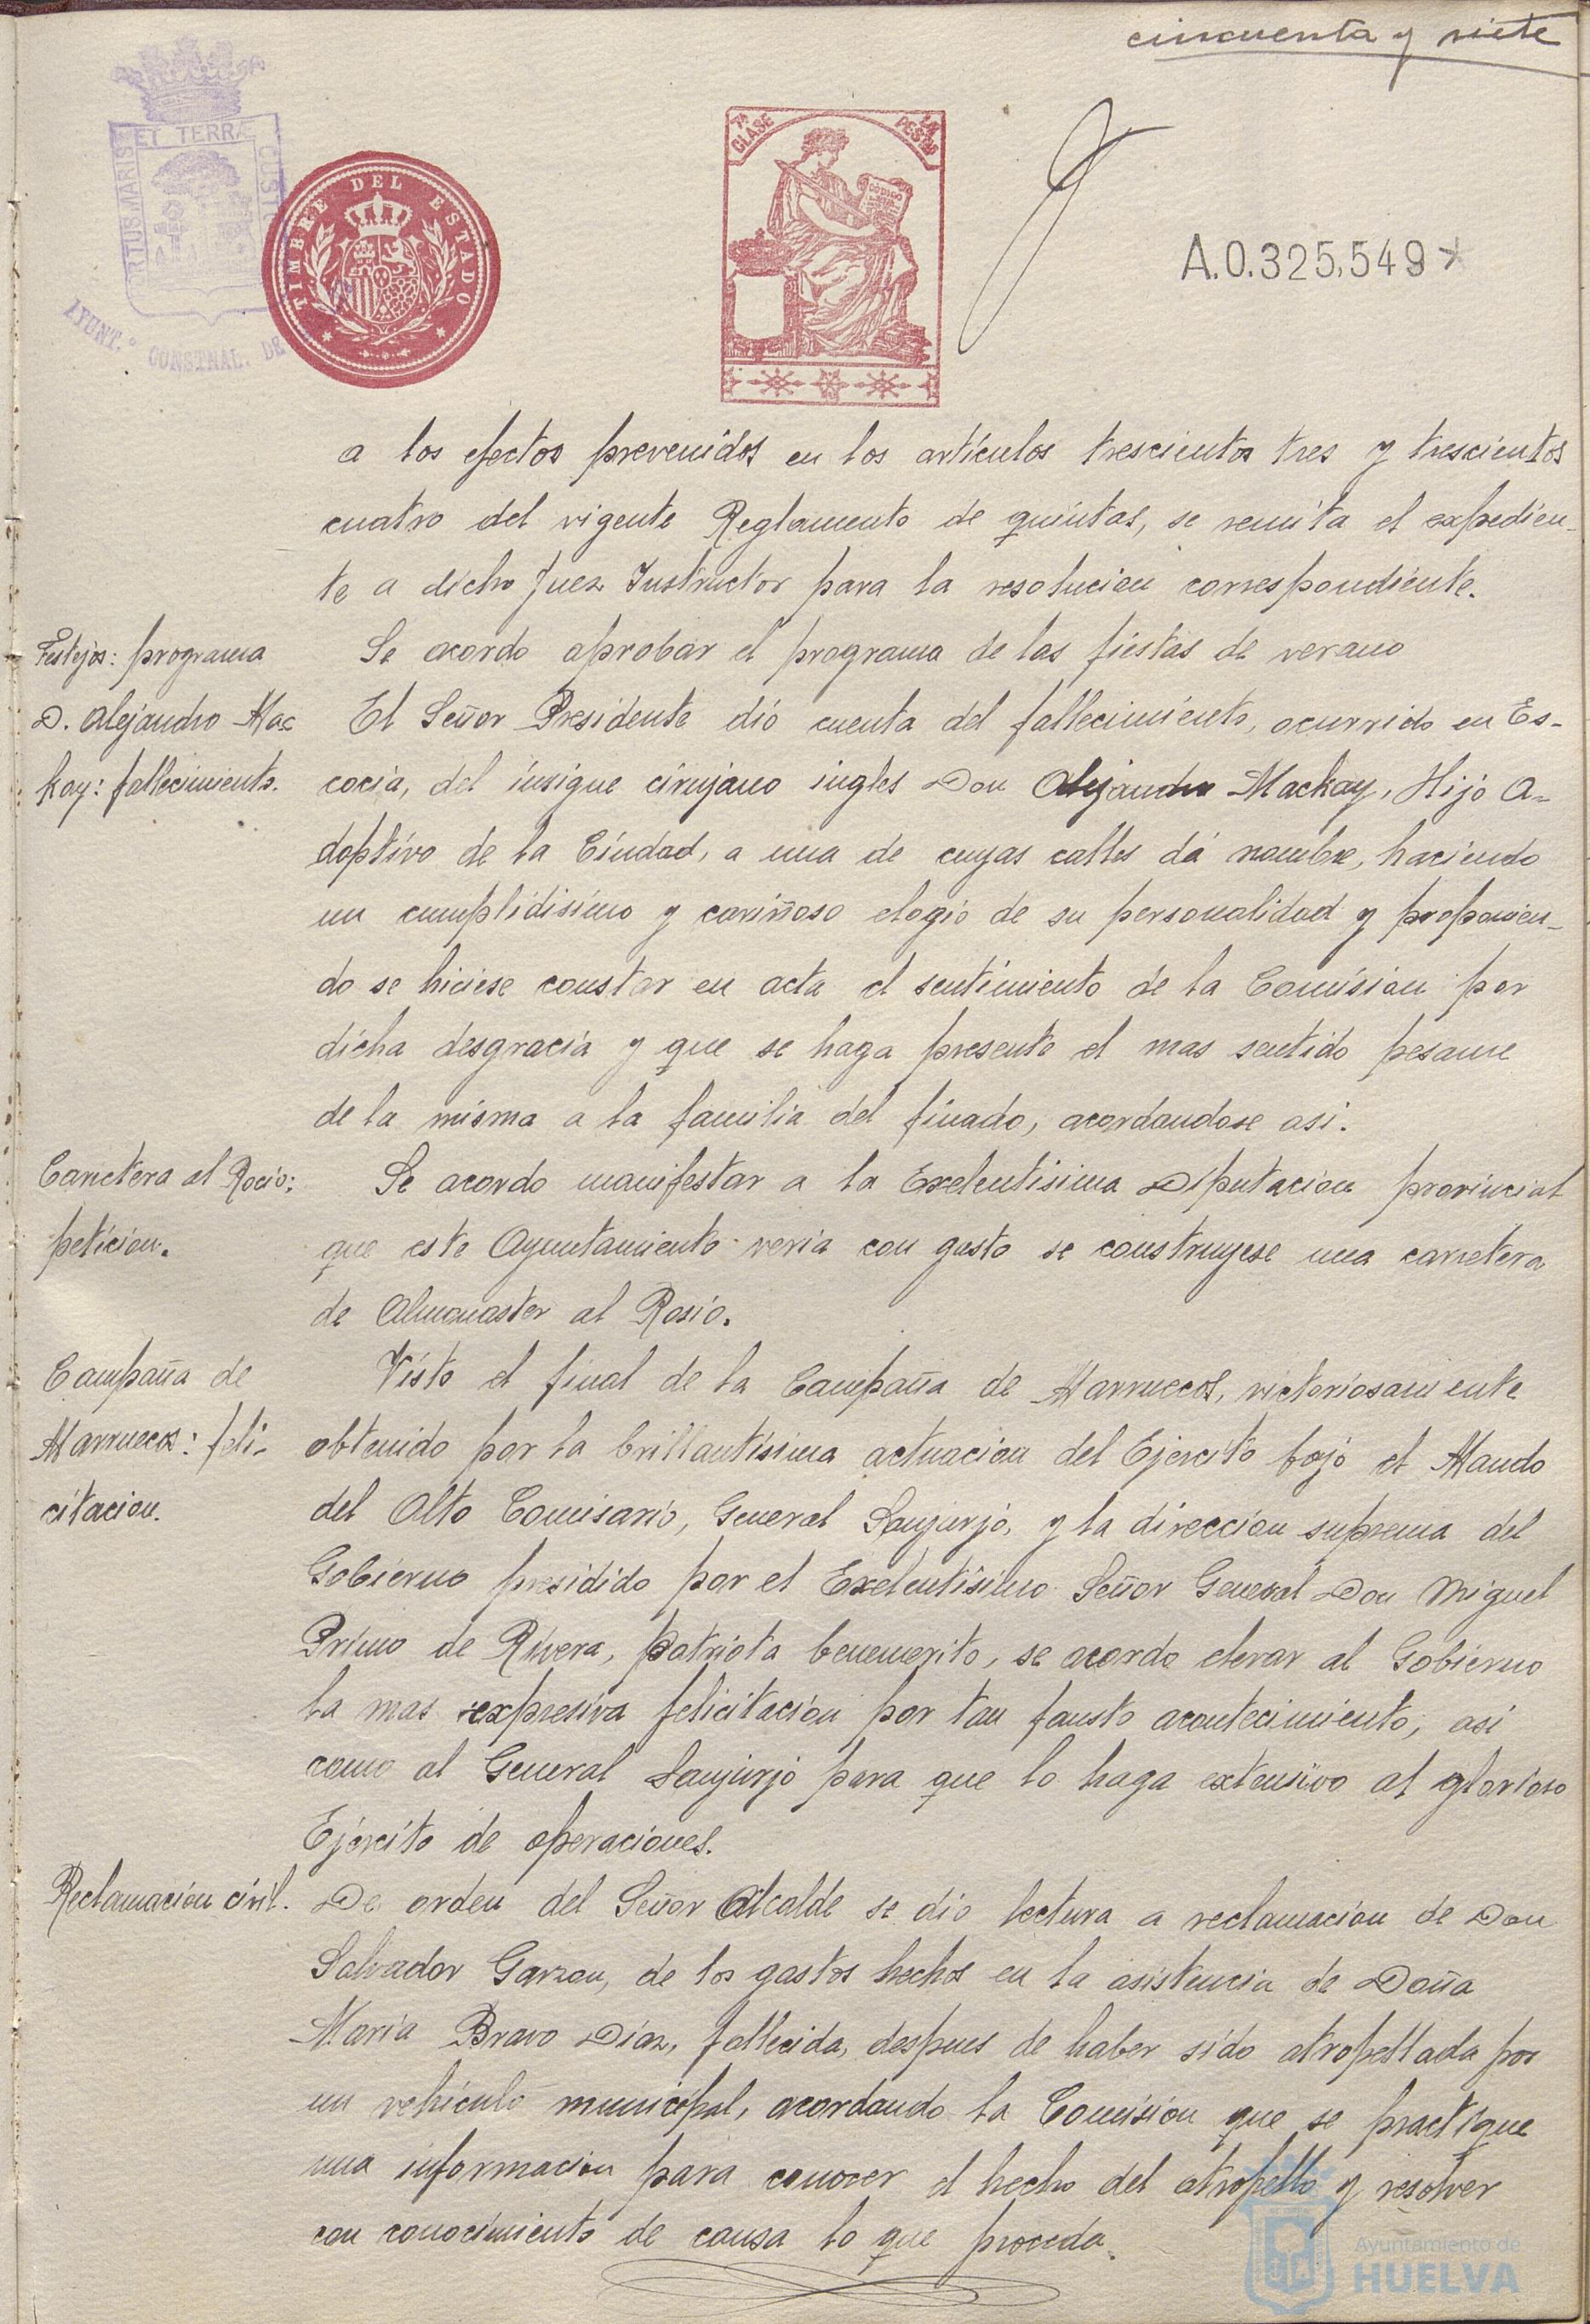 cincuenta y siete
ET TERRÆ
RTUS MARIS
CUST
AYUNT.º CONSTNAL. DE
TIMBRE DEL ESTADO
7ª CLASE
PESTAS
CODIGO
A.0.325,549*
a los efectos prevenidos en los artículos trescientos tres y trescientos
cuatro del vigente Reglamento de quintas, se remita el expedien-
te a dicho Juez Instructor para la resolucion correspondiente.
Festejos: programa
Se acordo aprobar el programa de las fiestas de verano
D. Alejandro Mac
kay: fallecimiento.
El Señor Presidente dió cuenta del fallecimiento, ocurrido en Es-
cocia, del insigne cirujano ingles Don Alejandro Mackay, Hijo A-
doptivo de la Ciudad, a una de cuyas calles dá nombre, haciendo
un cumplidisimo y cariñoso elogio de su personalidad y proponien-
do se hiciese constar en acta el sentimiento de la Comision por
dicha desgracia y que se haga presente el mas sentido pesame
de la misma a la familia del finado, acordandose asi.
Carretera al Rocio:
peticion.
Se acordo manifestar a la Exelentisima Diputacion provincial
que este Ayuntamiento veria con gusto se construyese una carretera
de Almonaster al Rosio.
Campaña de
Marruecos: feli-
citacion.
Visto el final de la Campaña de Marruecos, victoriosamente
obtenido por la brillantisima actuacion del Ejercito bajo el Mando
del Alto Comisario, General Sanjurjo, y la direccion suprema del
Gobierno presidido por el Exelentisimo Señor General Don Miguel
Primo de Rivera, patriota benemerito, se acordo elevar al Gobierno
la mas expresiva felicitacion por tan fausto acontecimiento, asi
como al General Sanjurjo para que lo haga extensivo al glorioso
Ejercito de operaciones.
Reclamacion civil.
De orden del Señor Alcalde se dio lectura a reclamacion de Don
Salvador Garzon, de los gastos hechos en la asistencia de Doña
Maria Bravo Diaz, fallecida, despues de haber sido atropellada por
un vehiculo municipal, acordando la Comision que se practique
una informacion para conocer el hecho del atropello y resolver
con conocimiento de causa lo que proceda.
Ayuntamiento de
HUELVA